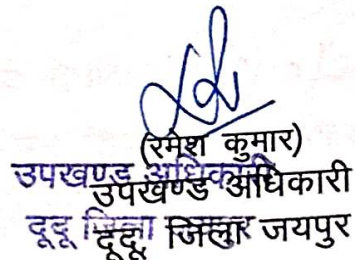 (रमेश कुमार)
उपखण्ड अधिकारी
उपखण्ड अधिकारी
दूदू जिला जयपुर
दूदू, जिला जयपुर